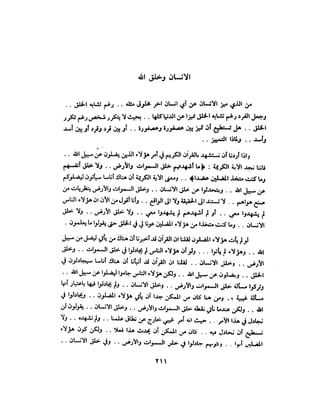 الانسان وخلق الله
من الذي ميز الانسان عن أي انسان آخر مخلوق مثله .. رغم تشابه الخلق ..
وجعل الفرد رغم تشابه الخلق مميزا عن الدنيا كلها .. بحيث لا يتكرر شخص رغم تكرر
الخلق .. هل تستطيع أن تميز بين عصفورة وعصفورة .. أو بين قرد وقرد أو بين أسد
وأسد .. ولماذا التمييز ..
وإذا أردنا أن نستشهد بالقرآن الكريم في أمر هؤلاء الذين يضلون عن سبيل الله ..
فاننا نجد الآية الكريمة : ﴿ما أشهدتهم خلق السموات والأرض .. ولا خلق أنفسهم
وما كنت متخذ المضلين عضدا﴾ .. ومعنى الآية الكريمة أن هناك أناسا سيأتون ليضلوكم
عن سبيل الله .. ويتحدثوا عن خلق الانسان .. وخلق السموات والأرض بنظريات من
صنع هواهم .. لا تستند الى الحقيقة ولا الى الواقع .. وأنا أقول من الآن ان هؤلاء الناس
لم يشهدوا معي .. أو لم أشهدهم لم يشهدوا معي .. ولا خلق الأرض .. ولا خلق
الانسان .. وما كنت متخذا من هؤلاء المضلين عونا لي في الخلق حتى يقولوا ما يعلمون .
لو لم يأت هؤلاء المضلون لقلنا ان القرآن قد أخبرنا أن هناك من يأتي ليضل من سبيل
الله .. وهؤلاء لم يأتوا .. ولو أن هؤلاء الناس لم يجادلوا في خلق السموات .. وخلق
الأرض .. وخلق الانسان .. لقلنا ان القرآن قد أنبأنا أن هناك أناسا سيجادلون في
الخلق .. ويضلون عن سبيل الله .. ولكن هؤلاء الناس جاءوا ليضلوا عن سبيل الله ..
وتركوا مسألة خلق السموات والأرض .. وخلق الانسان .. ولم يجادلوا فيها باعتبار أنها
مسألة غيبية ، ومن هنا كان من الممكن جدا أن يأتي هؤلاء المضلون .. ويجادلوا في
الأرض .. ولكن عندما نأتي نقطة خلق السموات والأرض .. وخلق الانسان .. يقولون لن
نجادل في هذا الأمر .. حيث انه أمر غيبي خارج عن نطاق علمنا .. ولم نشهده .. ولا
نستطيع أن نجادل فيه .. كان من الممكن أن يحدث هذا فعلا .. ولكن كون هؤلاء
المضلين أتوا .. وكونهم جادلوا في خلق السموات والأرض .. وفي خلق الانسان ..
٢١١